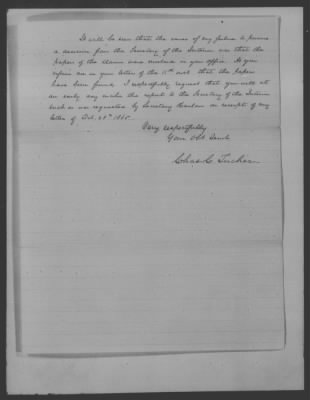 It will be seen that the cause of my failure to procure
a decision from the Secretary of the Interior was that the
papers of the claim were mislaid in your office. As you
inform me in your letter of the 15th inst that the papers
have been found, I respectfully request that you will at
an early day make the report to the Secretary of the Interior
such as was requested by Secretary Harlan on receipt of my
letter of Oct. 28th 1865.
Very respectfully
Your Obt Servt
Chas. C. Tucker